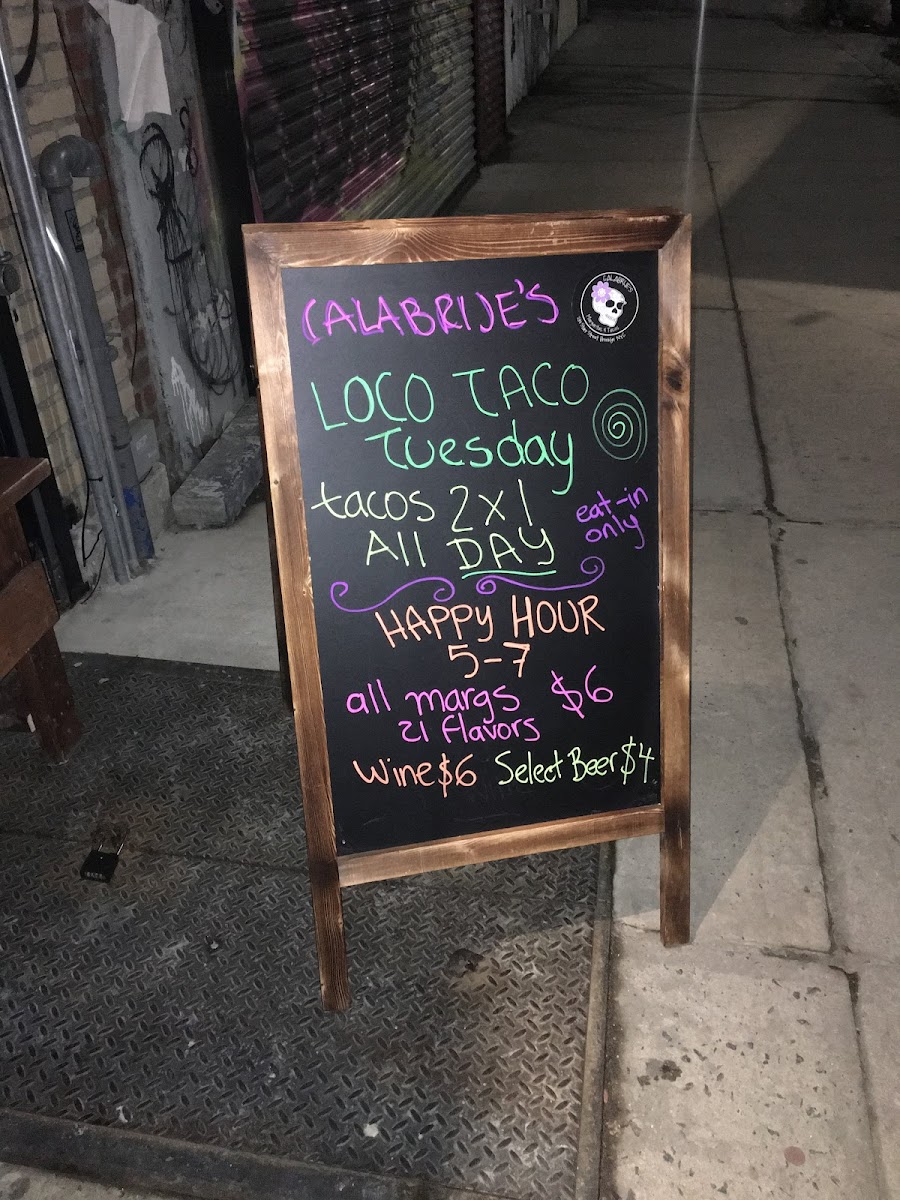 CALABRIJE'S
CALABRIJE'S
Margaritas & Tacos
LOCO TACO
Tuesday
tacos 2x1
All DAY
eat-in
only
HAPPY HOUR
5-7
all margs $6
21 flavors
Wine $6 Select Beer $4